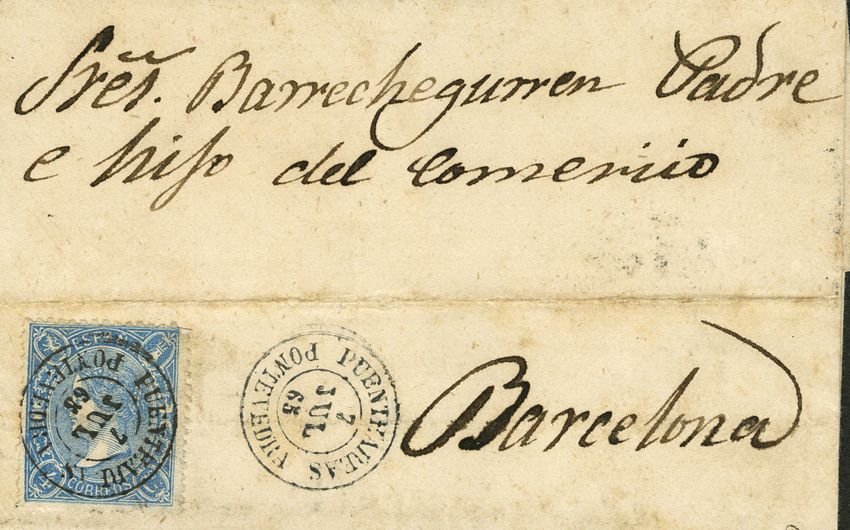 Sres. Barrechegurren Padre
e hijo del Comercio
Barcelona
PUENTEAREAS
7
JUL
65
PONTEVEDRA
PUENTEAREAS
7
JUL
PONTEVEDRA
CORREOS